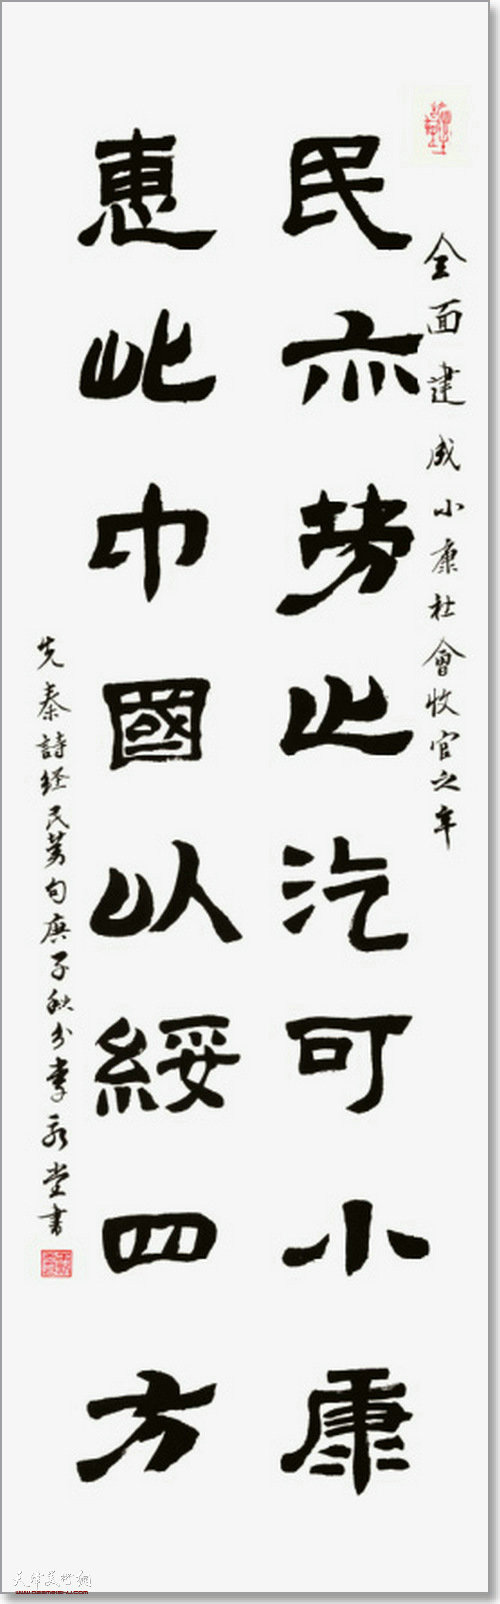 全面建成小康社會收官之年
民亦勞止汔可小康
惠此中國以綏四方
先秦詩經民勞句庚子秋分李永堂書
天津美术网